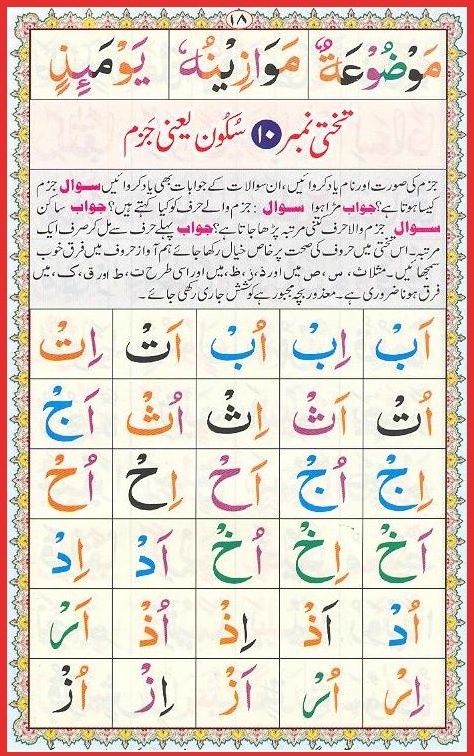 ۱۸
مَوْضُوْعَةٌ مَوَازِيْنُهٗ يَوْمَئِذٍ
تختی نمبر ۱۰ سُکُون یعنی جَزم
جزم کی صورت اور نام یاد کروائیں، ان سوالات کے جوابات بھی یاد کروائیں سوال جزم
کیسا ہوتا ہے؟ جواب مڑا ہوا سوال : جزم والے حرف کو کیا کہتے ہیں؟ جواب ساکن
سوال جزم والا حرف کتنی مرتبہ پڑھا جاتا ہے؟ جواب پہلے حرف سے مل کر صرف ایک
مرتبہ۔ اس تختی میں حروف کی صحت پر خاص خیال رکھا جائے، ہم آواز حروف میں فرق خوب
سمجھائیں۔ مثلاً ث، س، ص میں اور ذ، ز، ظ، میں اور اسی طرح ت، ط اور ق، ک، میں
فرق ہونا ضروری ہے۔ معذور بچہ مجبور ہے کوشش جاری رکھی جائے۔
اَبْ اِبْ اُبْ اَتْ اِتْ
اُتْ اَثْ اِثْ اُثْ اَجْ
اِجْ اُجْ اَحْ اِحْ اُحْ
اَخْ اِخْ اُخْ اَدْ اِدْ
اُدْ اَذْ اِذْ اُذْ اَرْ
اِرْ اُرْ اَزْ اِزْ اُزْ